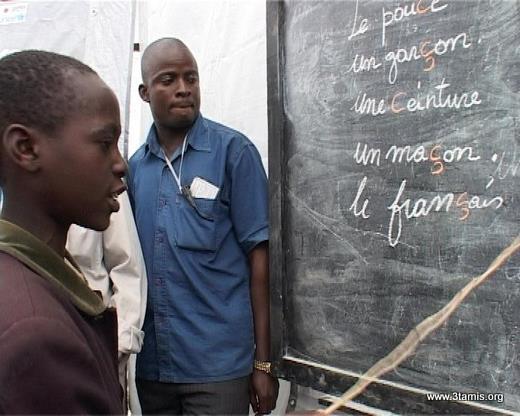 unicef
Le pouce
un garçon.
une ceinture
un maçon.
le français
www.3tamis.org